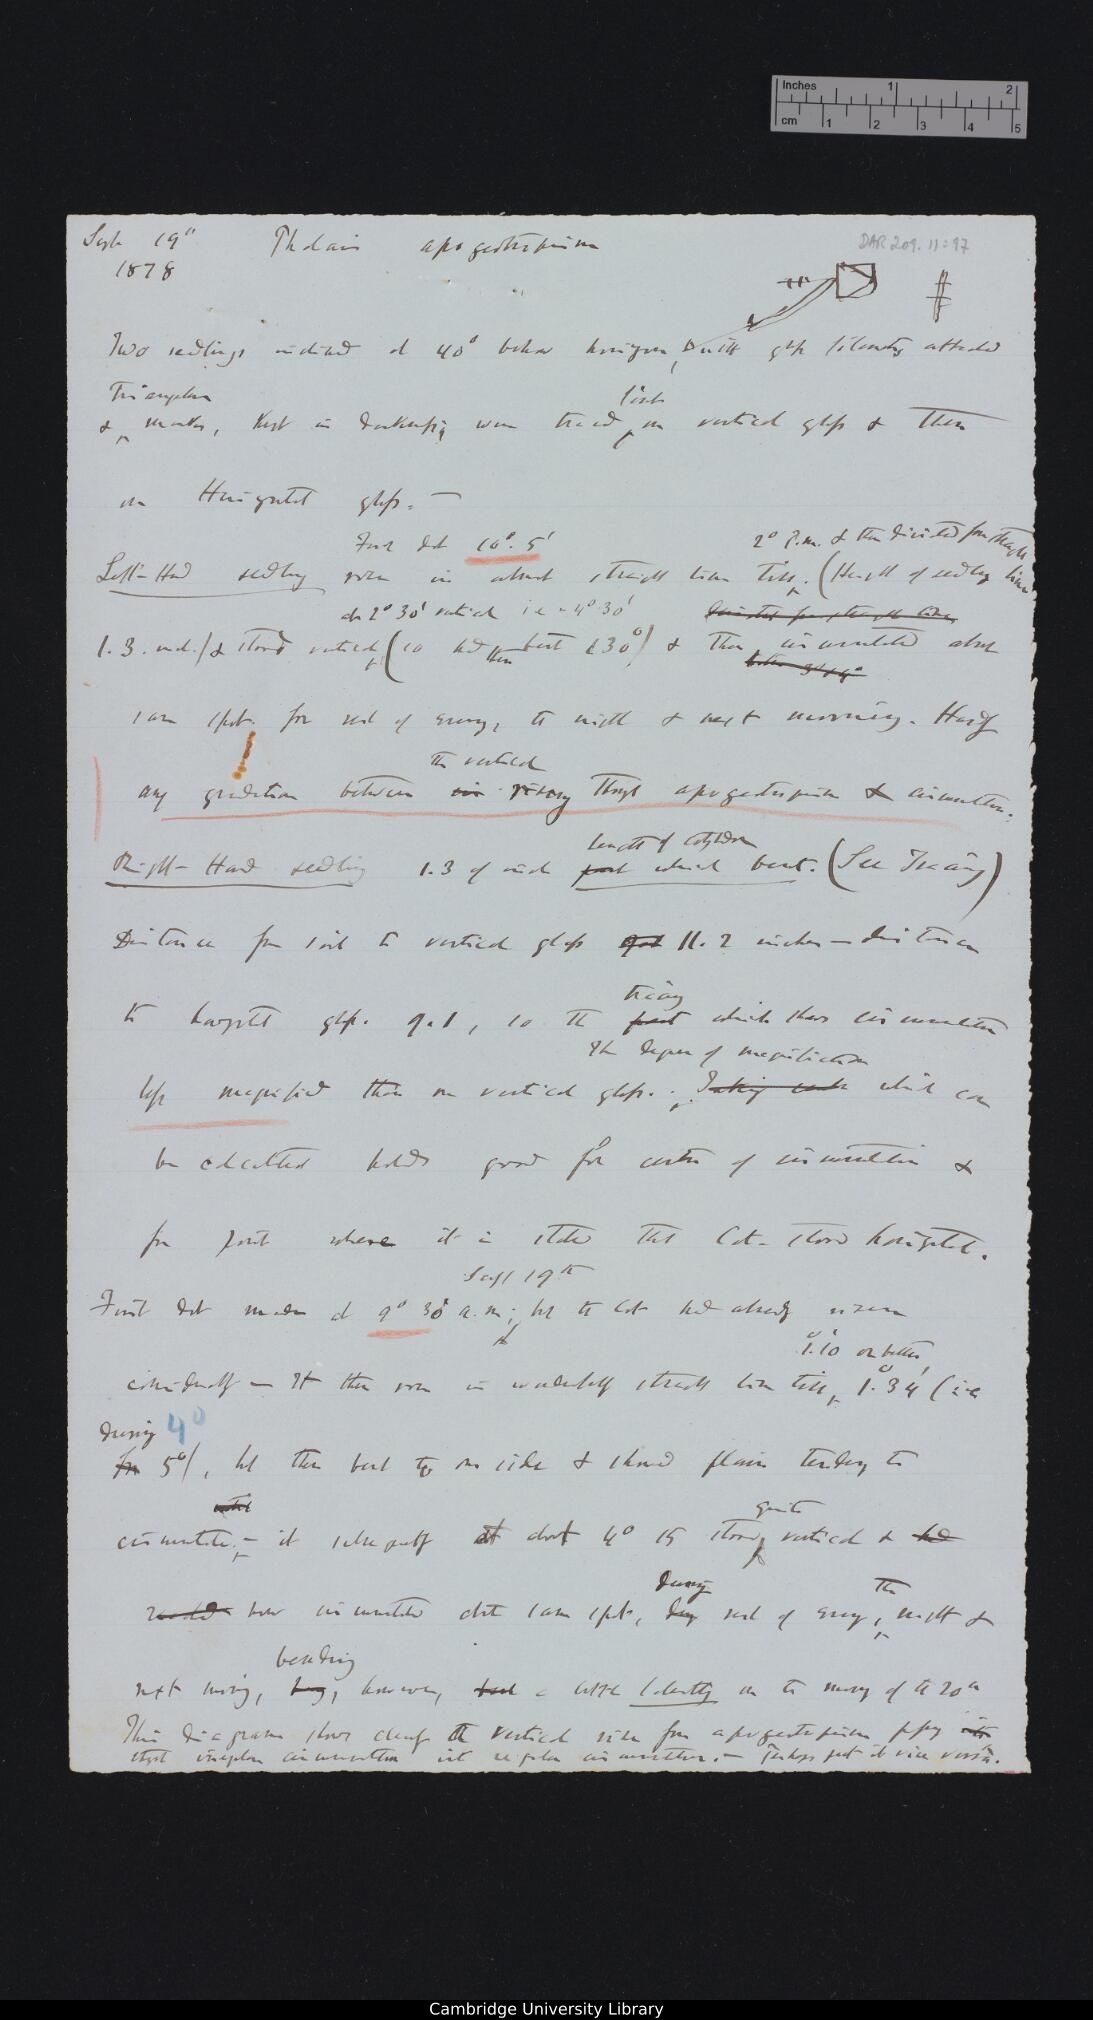 Inches 1 2
cm 1 2 3 4 5
DAR 209.11:97
Sept 19th Phalaris apogeotropism
1878
Two seedlings inclined at 40° below horizon, with glass filaments attached
Triangular first
& marks, kept in darkness, were traced on vertical glass & then
on Horizontal glass. —
First dot 10°. 5' 2° P.m. & then deviated from straight line
Left-Hand seedling rose in almost straight line till (Height of seedling
at 2° 30' vertical i.e. 4° 30' deviated from straight line
1.3. inch.) & stood vertical (so had then bent 130°) & then circumnutated about
same spot for rest of evening, the night & next morning. Hardly
the vertical
any gradation between rising through apogeotropism & circumnutation.
length of cotyledon
Right-Hand seedling 1.3 of inch part which bent. (See Tracing)
Distance from soil to vertical glass 11.2 inches — distance
tracing
to horizontal glass. 9.1, so the part which shows circumnutation
The degree of magnification
less magnified than on vertical glass. Taking which can
be calculated holds good for centre of circumnutation &
for point where it is stated that Cot. stood horizontal.
Sept 19th
First dot made at 9° 30' a.m; but the Cot had already risen
1°.10' or better
considerably — It then rose in wonderfully straight line till 1°.34' (i.e
during 4°
for 5°), but then bent to one side & showed plain tendency to
until quite
circumnutate. — it subsequently at about 4° 15 stood vertical & had
during the
now circumnutated about same spot, rest of evening, night &
bending
next morning, however, a little laterally on the morning of the 20th
This diagram shows clearly the vertical rise from apogeotropism passing into
through irregular circumnutation into regular circumnutation. — Perhaps put it vice versâ.
Cambridge University Library